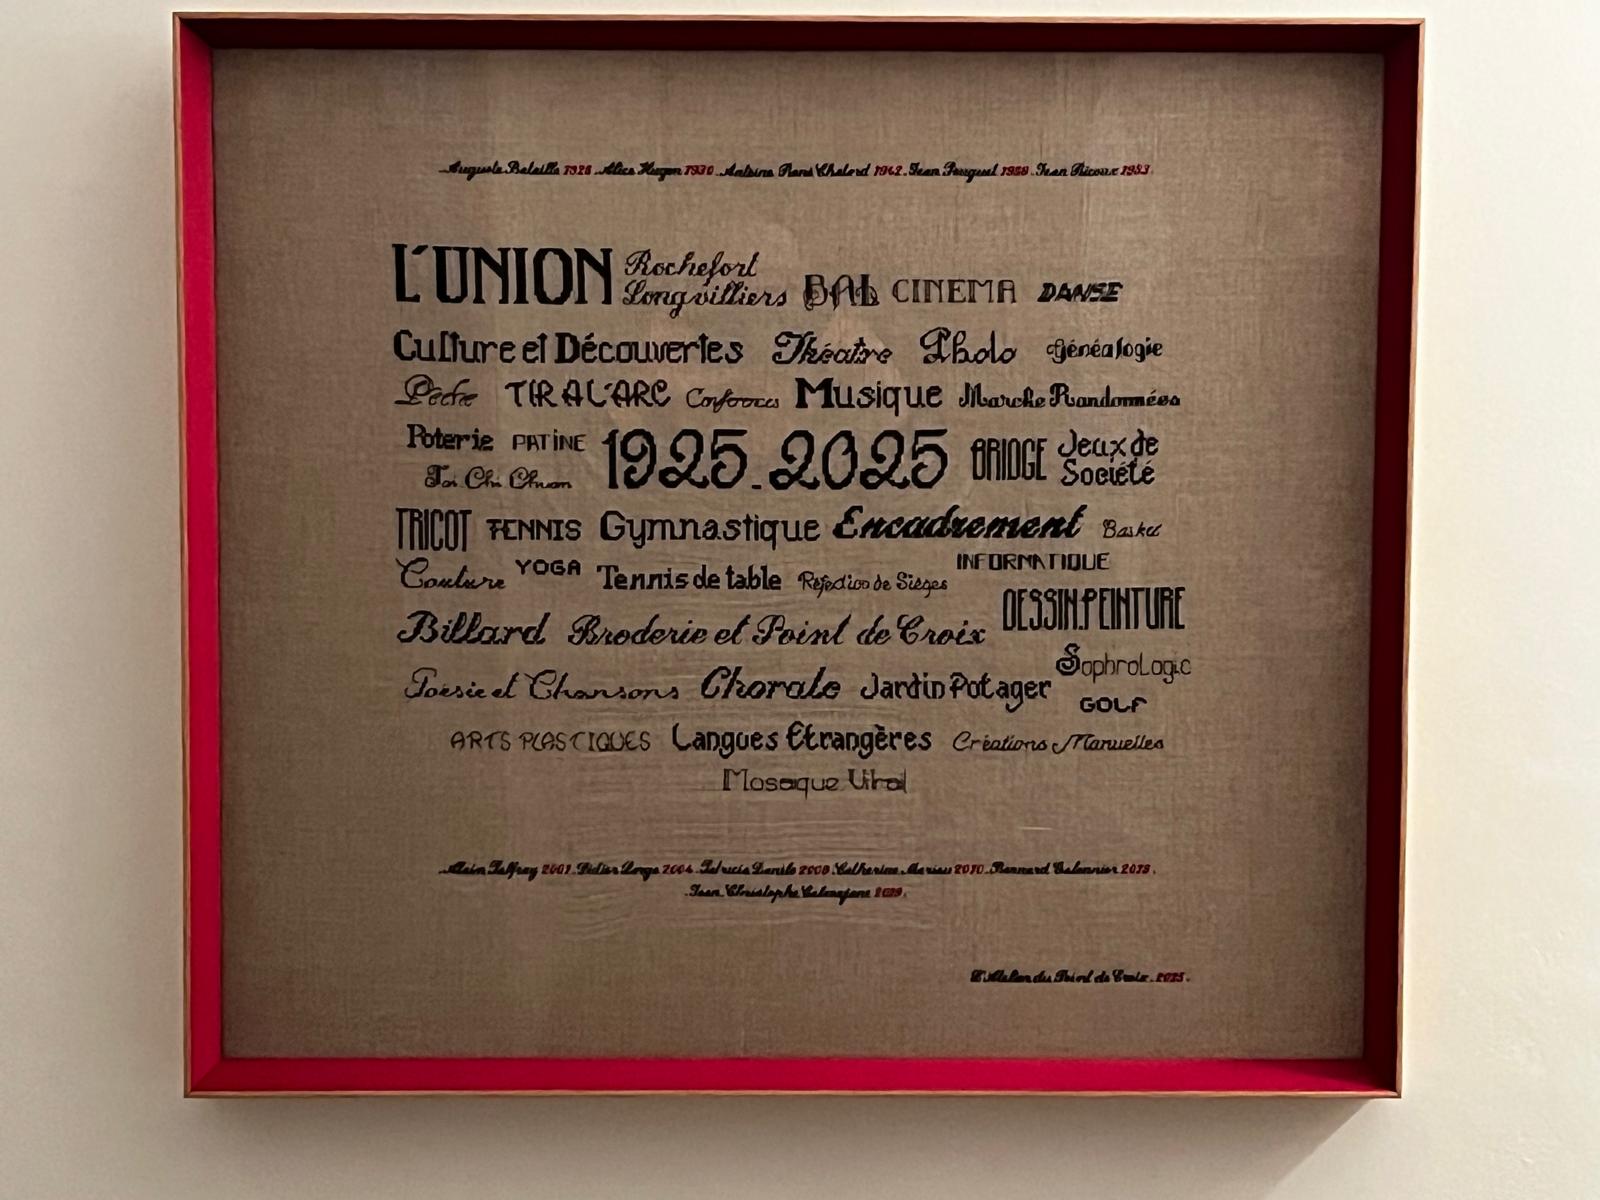 Auguste Bataille 1926. Alice Hugon 1930. Antoine René Chalard 1942. Jean Pouguet 1958. Jean Ricoux 1983
L'UNION Rochefort
Longvilliers BAL CINEMA DANSE
Culture et Découvertes Théatre Photo Généalogie
Pêche TIR A L'ARC Conférences Musique Marche Randonnées
Poterie PATINE 1925.2025 BRIDGE Jeux de
Société
Tai Chi Chuan
TRICOT TENNIS Gymnastique Encadrement Basket
Couture YOGA Tennis de table Réfection de Sièges INFORMATIQUE
Billard Broderie et Point de Croix DESSIN.PEINTURE
Poésie et Chansons Chorale Jardin Potager Sophrologie
GOLF
ARTS PLASTIQUES Langues Etrangères Créations Manuelles
Mosaique Vitrail
Alain 2001. Didier 2004. Patricia Danilo 2008. Catherine 2010. Bernard 2018.
Jean Christophe 2019.
L'Atelier du Point de Croix. 2025.